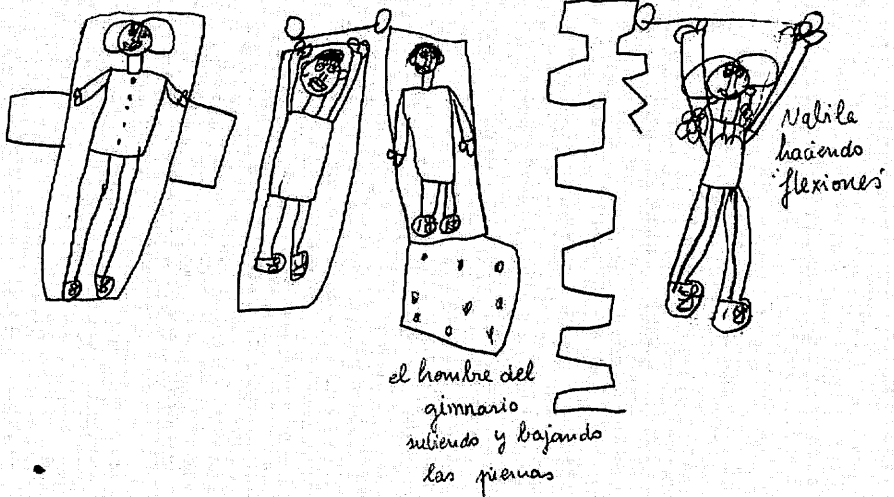 Nalila
haciendo
"flexiones"
el hombre del
gimnasio
subiendo y bajando
las piernas